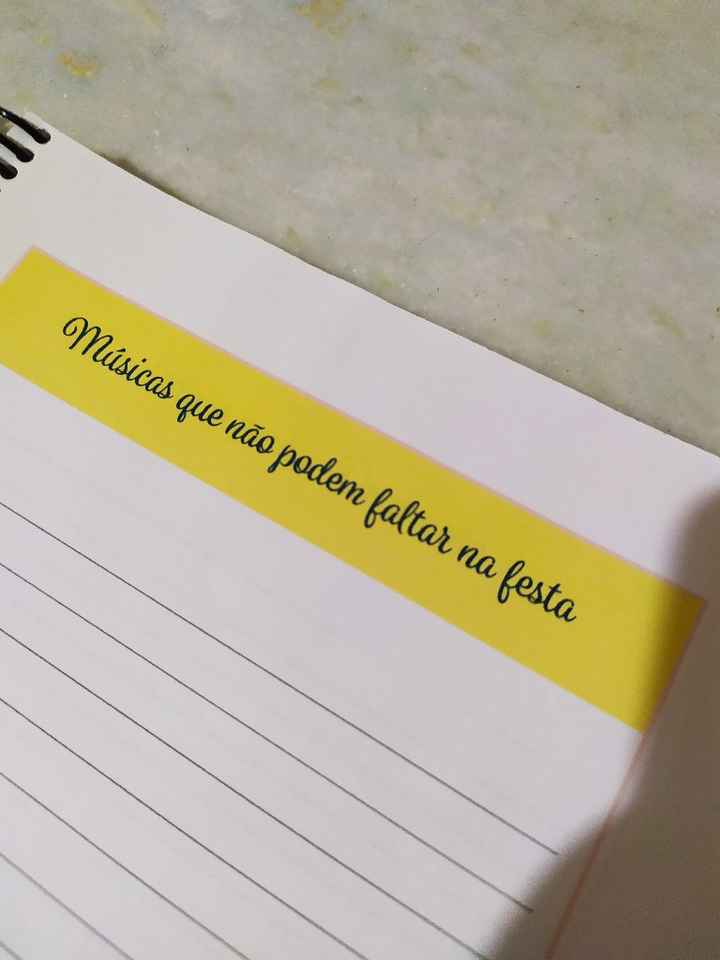 Músicas que não podem faltar na festa